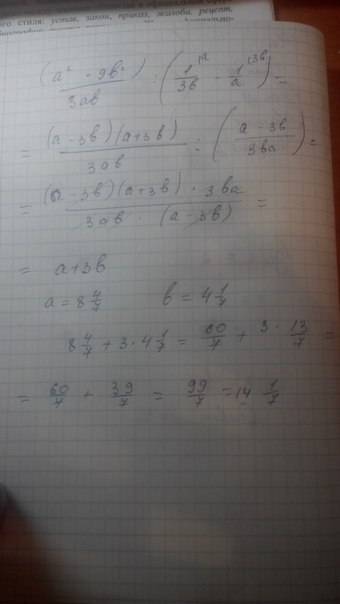 ого стиля: устав, закон, приказ, жалоба, рецепт,
(a² - 9b²)/3ab : (1/3b - 1/a) =
= (a - 3b)(a + 3b)/3ab : (a - 3b/3ba) =
= (a - 3b)(a + 3b) · 3ba/3ab · (a - 3b) =
= a + 3b
a = 8 4/7 b = 4 1/7
8 4/7 + 3 · 4 1/7 = 60/7 + 3 · 13/7 =
= 60/7 + 39/7 = 99/7 = 14 1/7